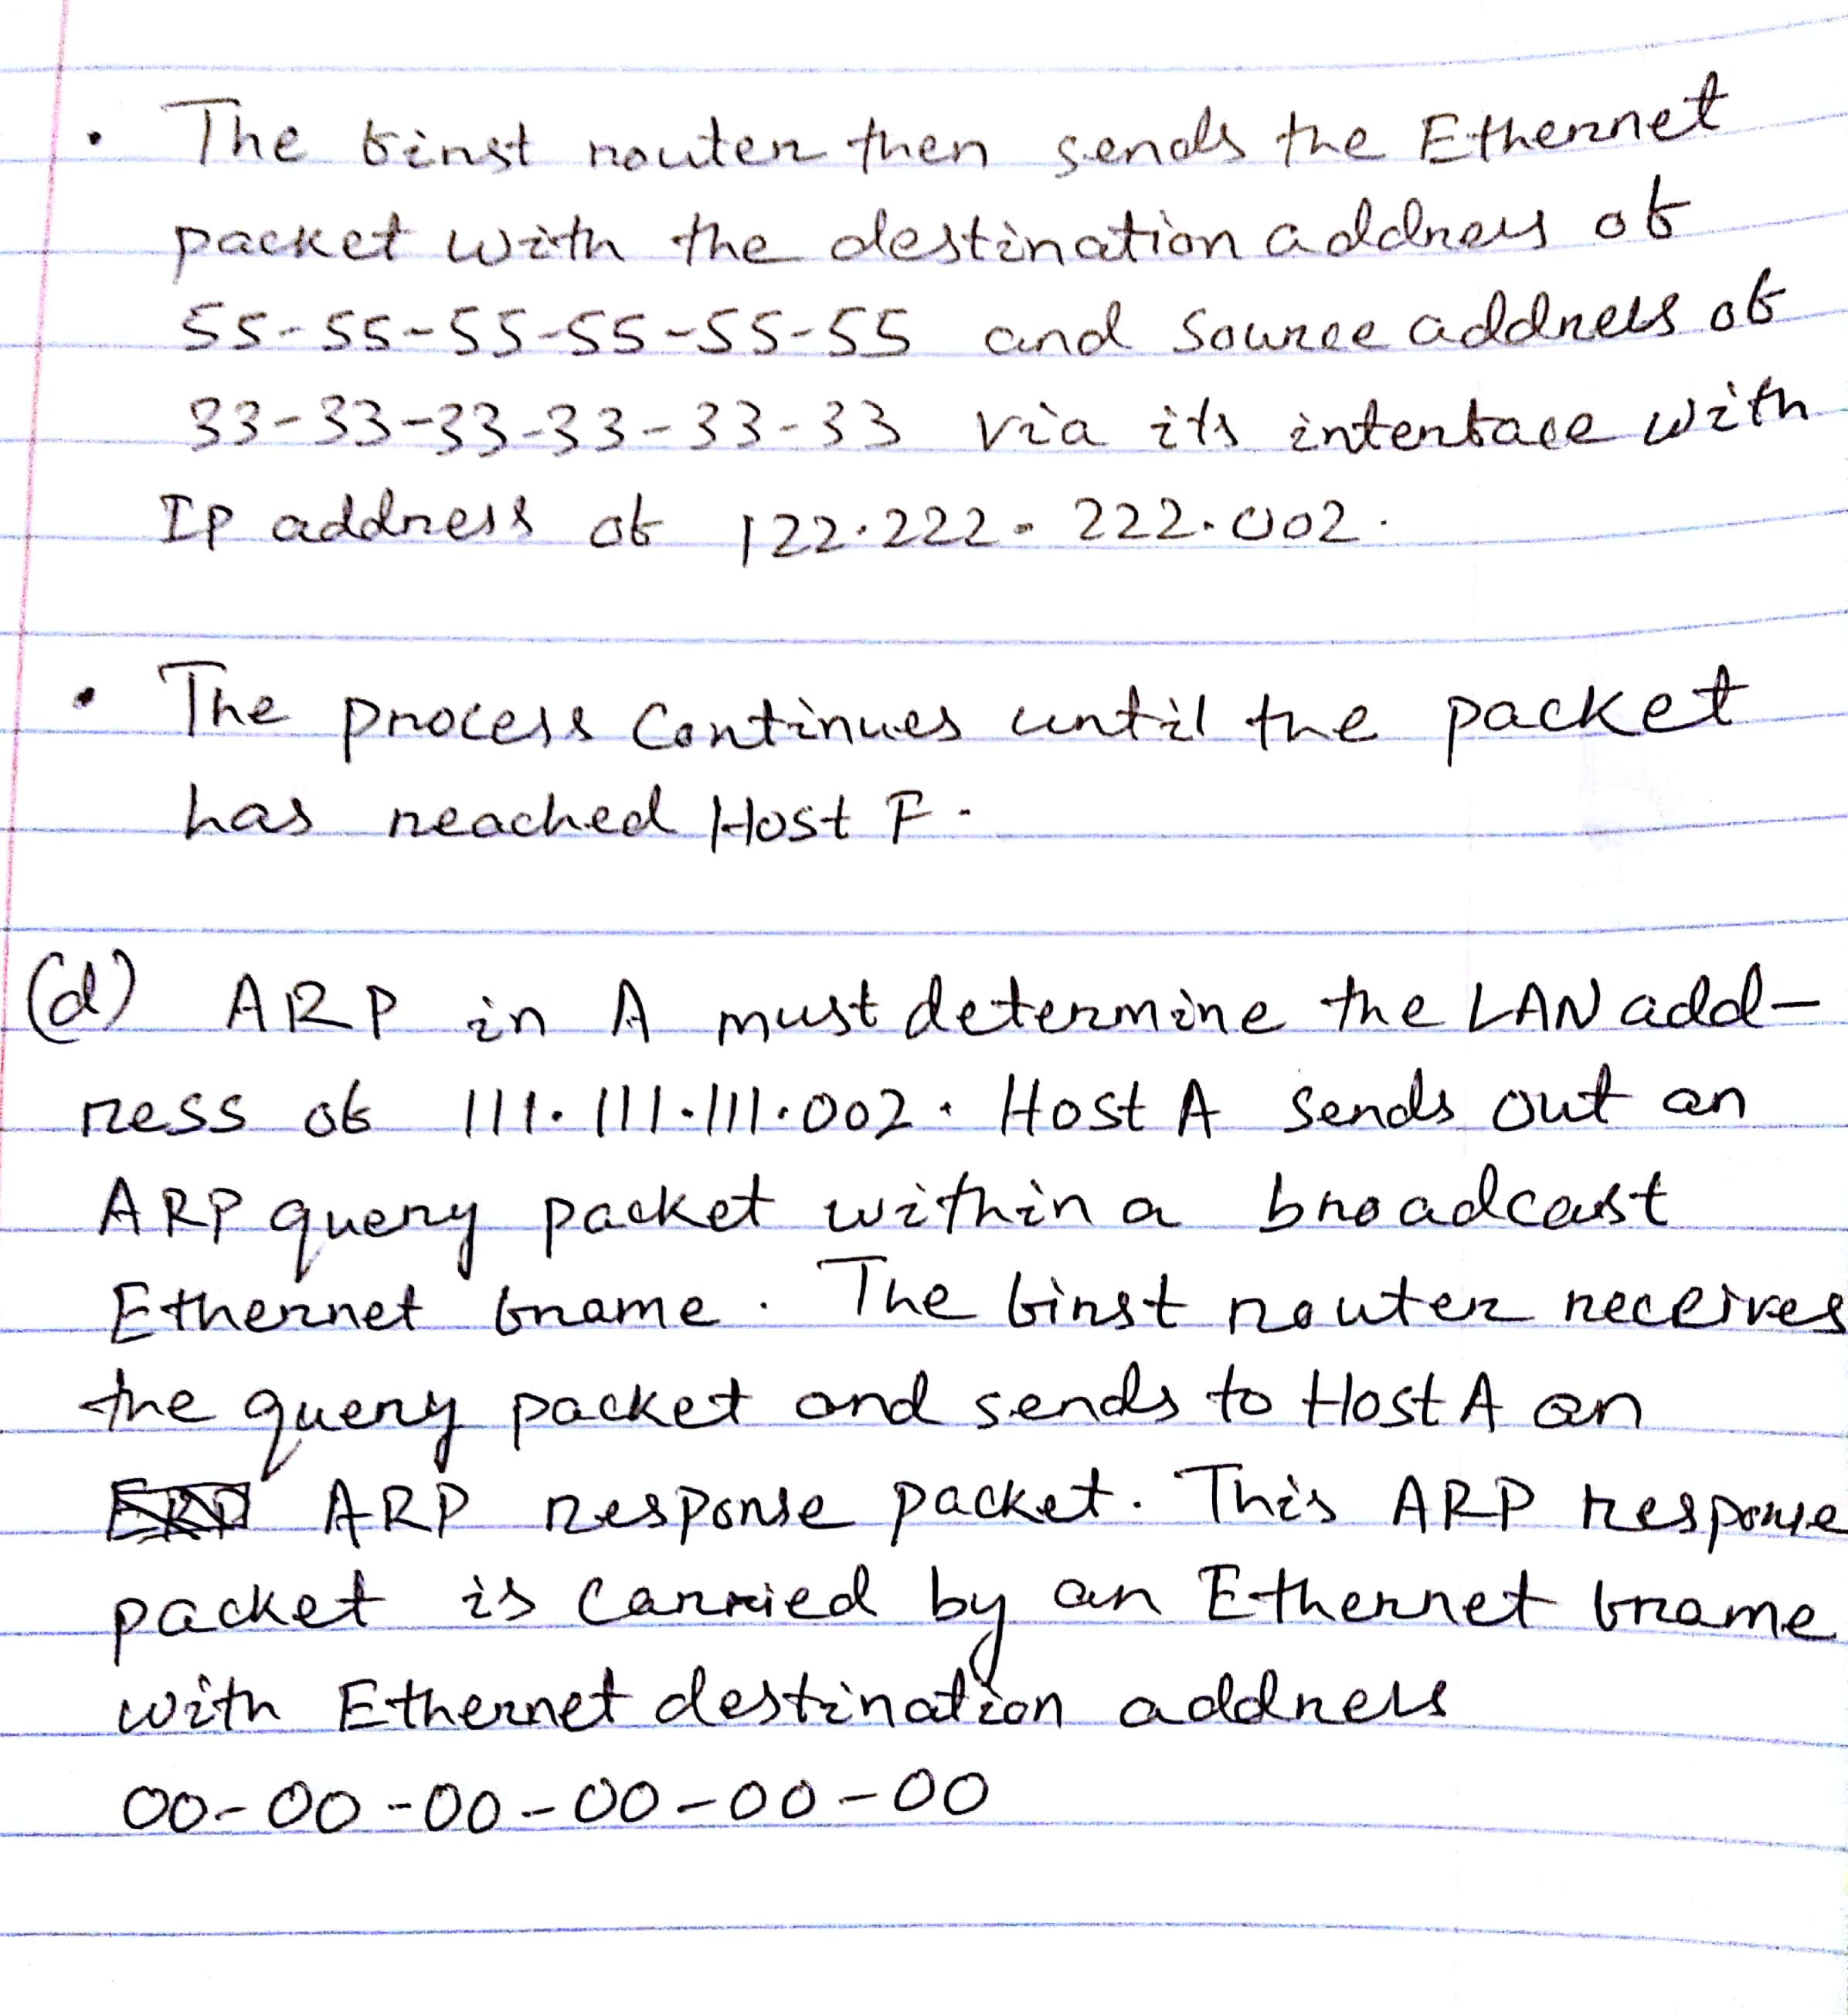 • The first router then sends the Ethernet
packet with the destination address of
55-55-55-55-55-55 and Source address of
33-33-33-33-33-33 via its interface with
IP address of 122.222.222.002.
• The process Continues until the packet
has reached Host F.
(d) ARP in A must determine the LAN add-
ress of 111.111.111.002. Host A sends out an
ARP query packet within a broadcast
Ethernet frame. The first router receives
the query packet and sends to Host A an
ARP response packet. This ARP response
packet is Carried by an Ethernet frame
with Ethernet destination address
00-00-00-00-00-00